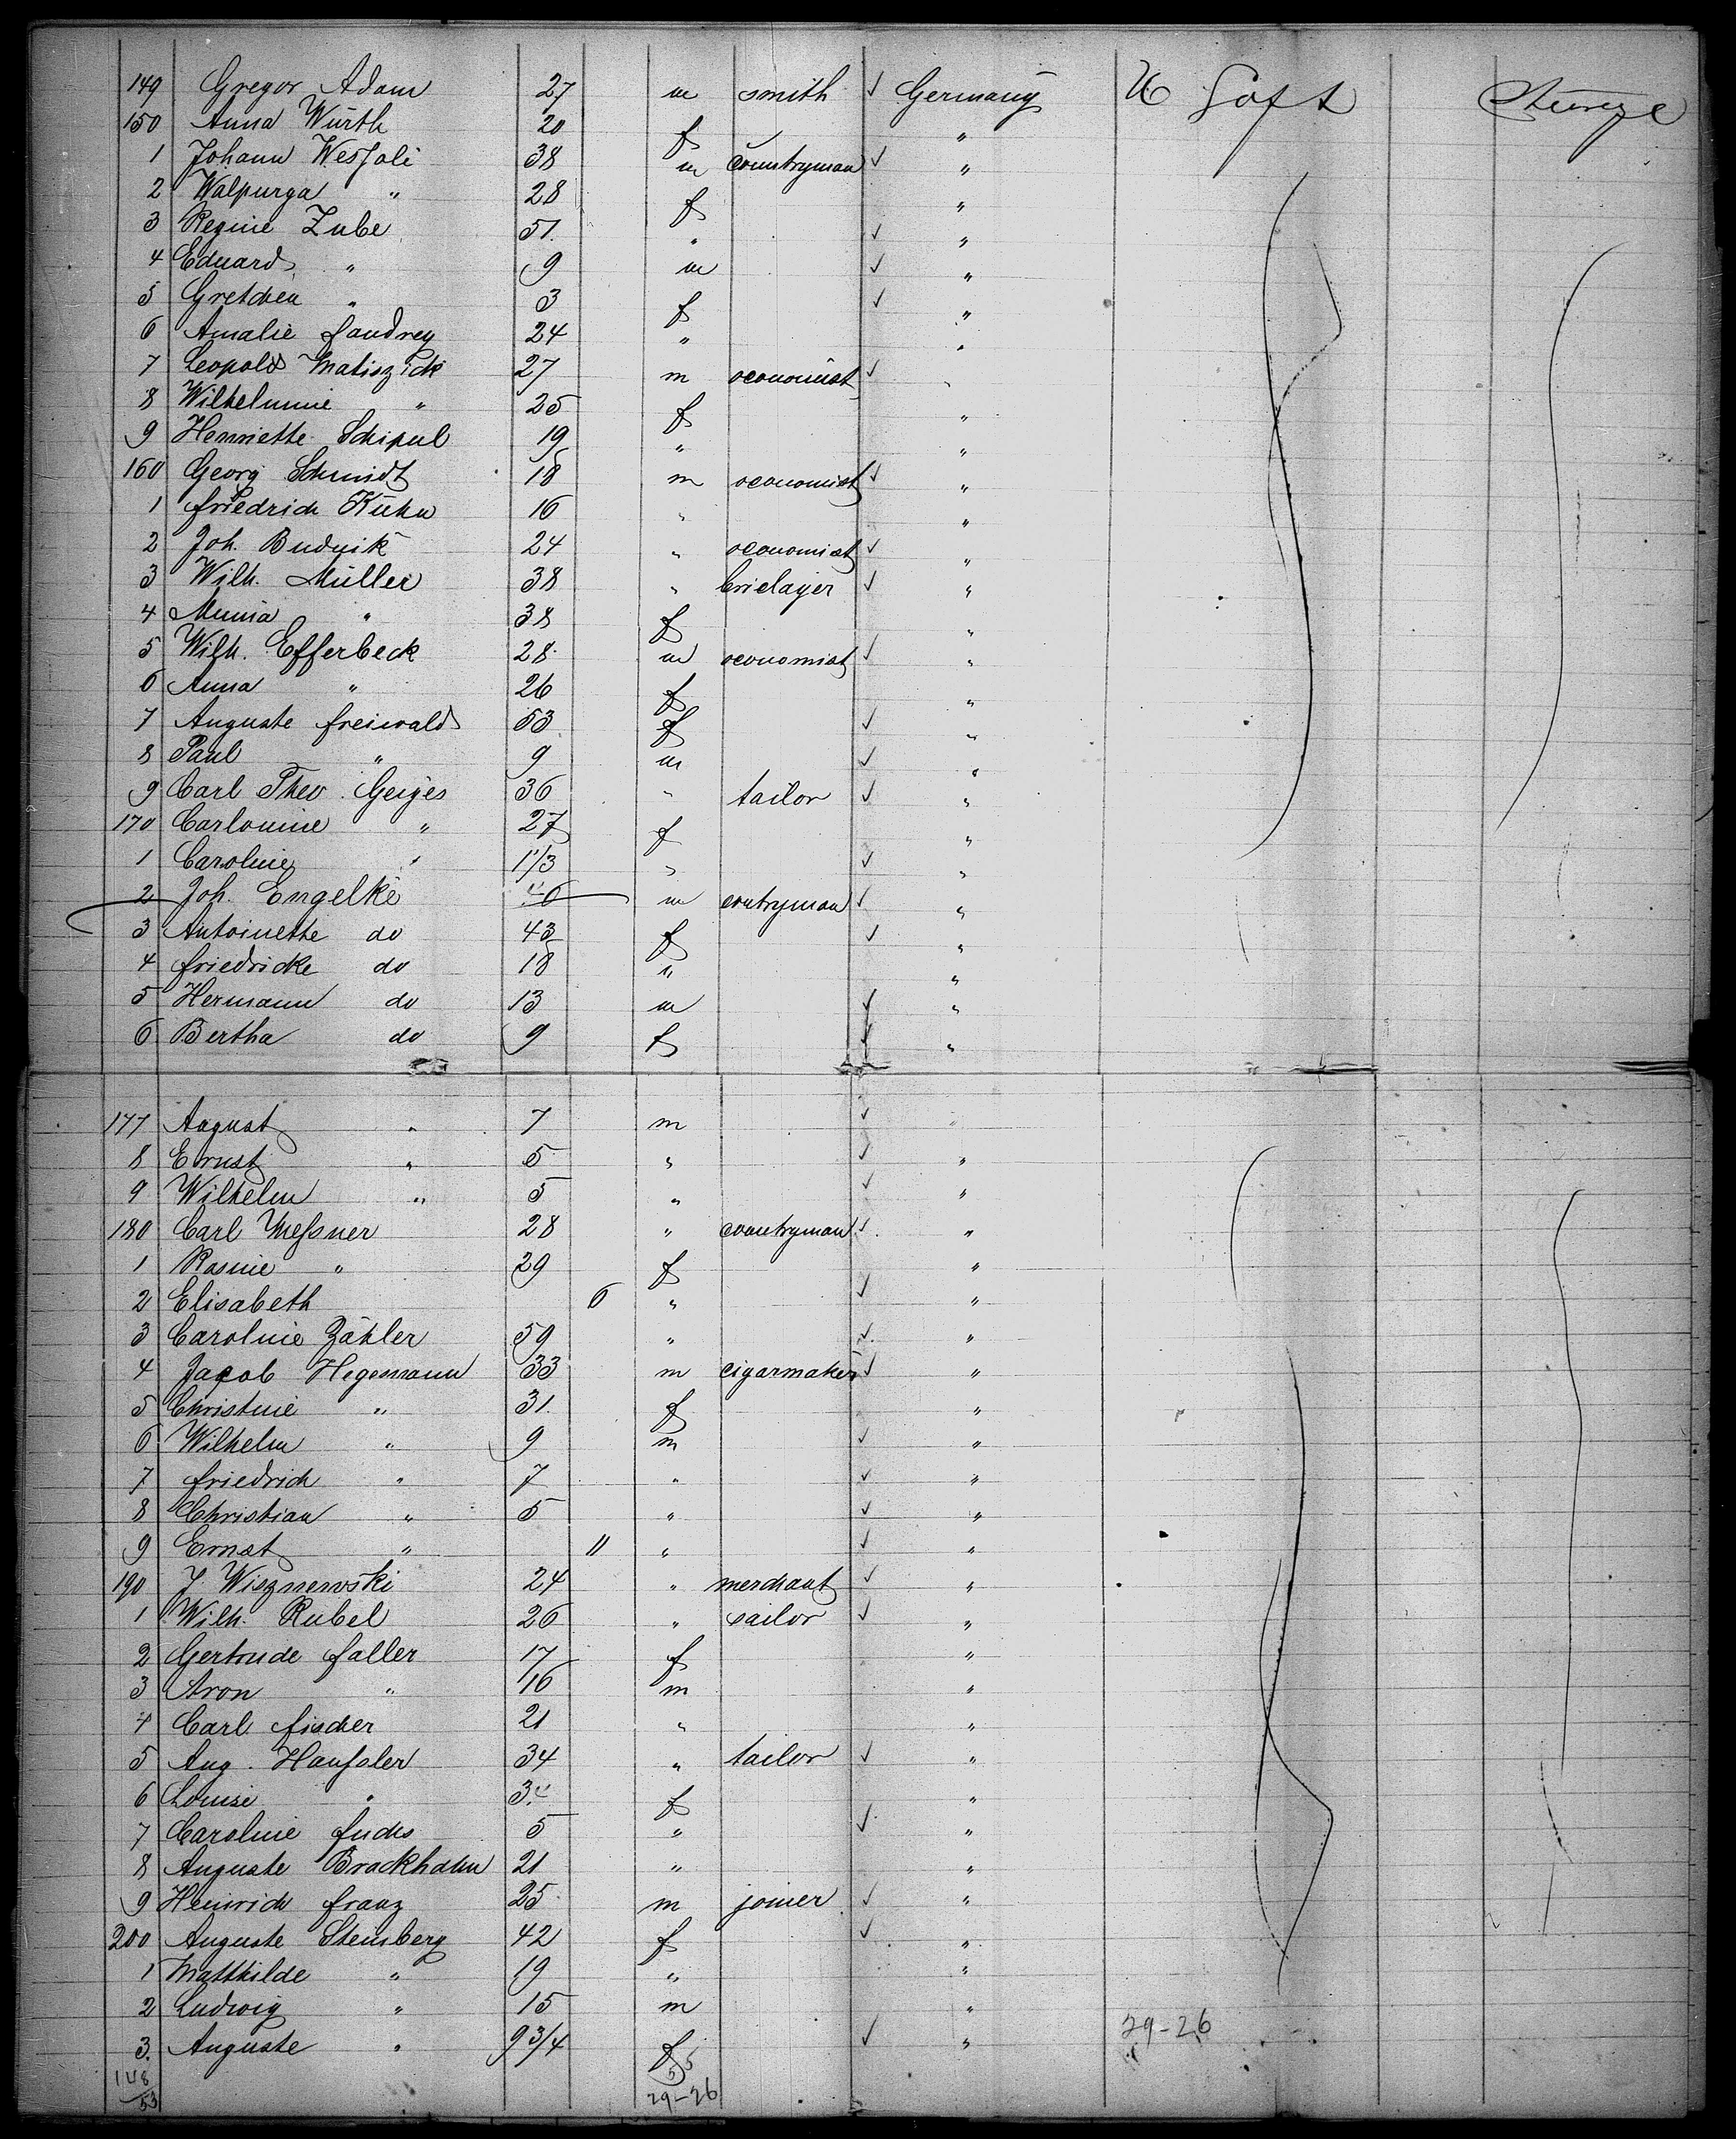 149 Gregor Adam 27 m smith ✓ Germany U Soft Steerage
150 Anna Würth 20 f "
1 Johann Wesfali 38 m Countryman ✓ "
2 Walpurga " 28 f "
3 Regine Zube 51. " ✓ "
4 Eduard " 9 m ✓ "
5 Gretchen " 3 f ✓ "
6 Amalie Landrey 24 " "
7 Leopold Matiszick 27 m oeconomist ✓ "
8 Wilhelmine " 25 f "
9 Henriette Schipul 19 " "
160 Georg Schmidt 18 m oeconomist ✓ "
1 Friedrich Kühn 16 " "
2 Joh. Budnik 24 " oeconomist ✓ "
3 Wilh. Müller 38 " briclayer ✓ "
4 Minna " 38 f "
5 Wilh. Efferbeck 28 m oeconomist ✓ "
6 Anna " 26 f "
7 Auguste Freiwald 53 f ✓ "
8 Paul " 9 m ✓ "
9 Carl Theo. Geiges 36 " tailor ✓ "
170 Carlomine " 27 f "
1 Caroline " 1 1/3 " ✓ "
2 Joh. Engelke m contryman ✓ "
3 Antoinette do 43 f ✓ "
4 Friedricke do 18 " "
5 Hermann do 13 m ✓ "
6 Bertha do 9 f ✓ "
177 August " 7 m ✓ "
8 Ernst " 5 " ✓ "
9 Wilhelm " 5 " ✓ "
180 Carl Meßner 28 " countryman ✓ "
1 Rosine " 29 f "
2 Elisabeth 6 " ✓ "
3 Caroline Zähler 59 " ✓ "
4 Jacob Hegemann 33 m cigarmaker ✓ "
5 Christine " 31. f "
6 Wilhelm " 9 m ✓ "
7 Friedrich " 7 " ✓ "
8 Christian " 5 " ✓ "
9 Ernst " 11 " ✓ "
190 J. Wisznewski 24 " merchant ✓ "
1 Wilh. Rubel 26 " sailor ✓ "
2 Gertrude Faller 17 f "
3 Aron " 16 m "
4 Carl Fischer 21 " "
5 Aug. Haußler 34 " tailor ✓ "
6 Louise " f "
7 Caroline Fuchs 5 " ✓ "
8 Auguste Brackhahn 21 " "
9 Heinrich Franz 25 m joiner ✓ "
200 Auguste Steinberg 42 f ✓ "
1 Matthilde " 19 " "
2 Ludwig " 15 m "
3. Auguste " 9 3/4 f ✓ " 29-26
148 55
53 29-26